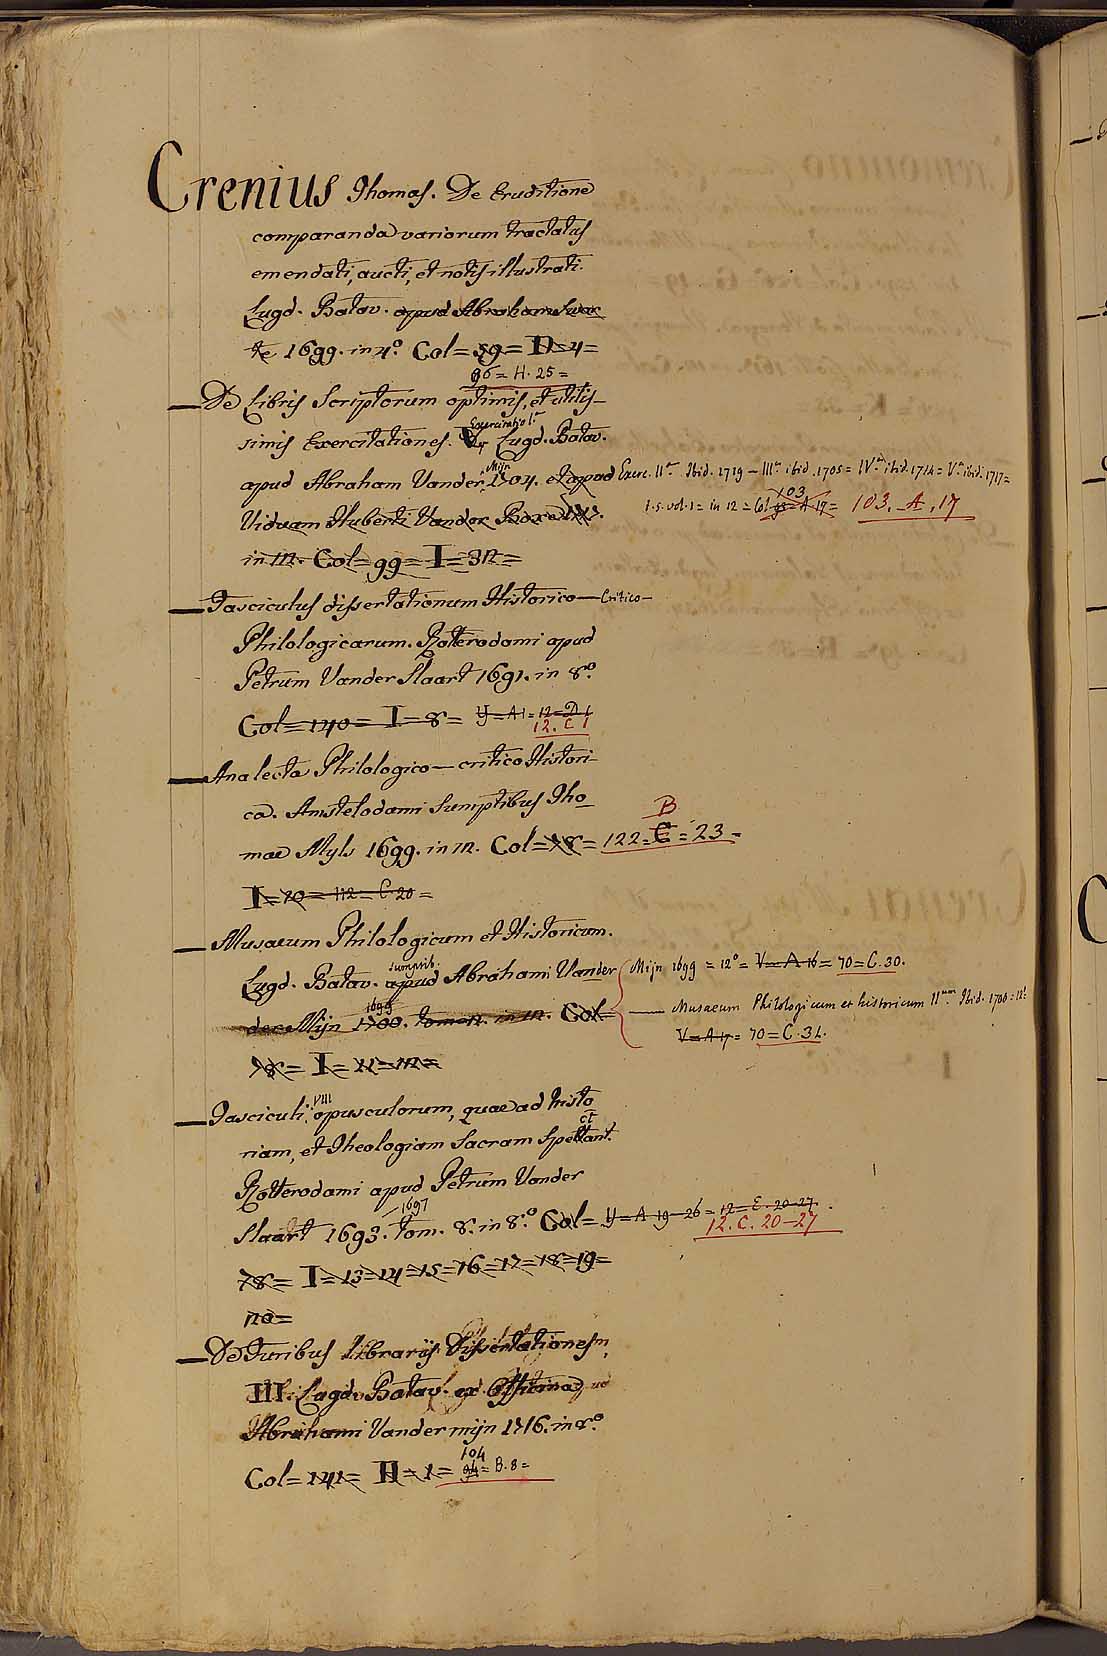 Crenius Thomas. De Eruditione
comparanda variorum tractatus
emendati, aucti, et notis illustrati.
Lugd. Batav. apud Abraham Swar
te 1699. in 4.° Col= 59= D= 4=
96= H. 25=
— De Libris Scriptorum optimis, et utilis-
simis Exercitationes. Exercitatio I.ª Lugd. Batav.
apud Abraham Vander Mijn 1704. et apud Exerc. IIª. Ibid. 1719 — IIIª. ibid. 1705= IVª. ibid. 1714= Vª. ibid. 1717=
Viduam Huberti Vander Boxe 103
t. 5. vol. 1= in 12= Col = A 17= 103. A. 17
in 12. Col= 99= I= 32=
— Fasciculus dissertationum Historico— Critico—
Philologicarum. Rotterodami apud
Petrum Vander Slaart 1691. in 8.°
Col= 140= I= 8= Y= A 1= 12= D 1
12. C 1
— Analecta Philologico— critico Histori-
ca. Amstelodami Sumptibus Tho-
B
mae Myls 1699. in 12. Col= 78= 122= C= 23=
I= 20= 112= C. 20=
— Musaeum Philologicum et Historicum.
Lugd. Batav. sumptib. apud Abrahami Vander Mijn 1699= 12°= V= A 16= 70= C. 30.
der Mijn 1699 1700. tom. 2. in 12. Col= — Musaeum Philologicum et historicum IIum. Ibid. 1700= 12.°
V= A 17= 70= C. 31.
78= I= 11= 12=
— Fasciculi VIII opusculorum, quae ad histo
riam, et Theologiam Sacram Spectant.
Rotterodami apud Petrum Vander
Slaart 1693. — 1697 tom. 8. in 8.° Col= Y= A 19— 26= 12= E. 20-27.
12. C. 20—27
78= I= 13= 14= 15= 16= 17= 18= 19=
20=
— De Furibus Librariis Dissertationes
III. Lugd. Batav. ex Officina
Abrahami Vander mijn 1716. in 8.°
104
Col= 141= H= 1= 94= B. 8=